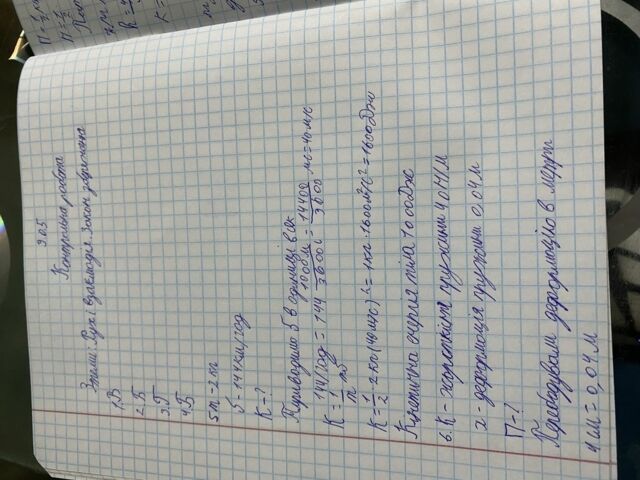 9.05
Контрольна робота
З теми: Рух і взаємодія. Закон збереження
1.В
2.Б
3.Г
4.Б
5.m-2кг
v-144км/год
К=?
Переводимо v в одиниці в СІ
144/год=144 1000м/3600с=14400/3600 м/с=40м/с
К=1/m mv
К=1/2·2кг(40м/с)²=1кг·1600м²/с²=1600Дж
Кінетична енергія тіла 1600Дж
6.k-жорсткість пружини 40Н/м
х-деформація пружини 0,04м
П-?
Переводимо деформацію в метри
4см=0,04м